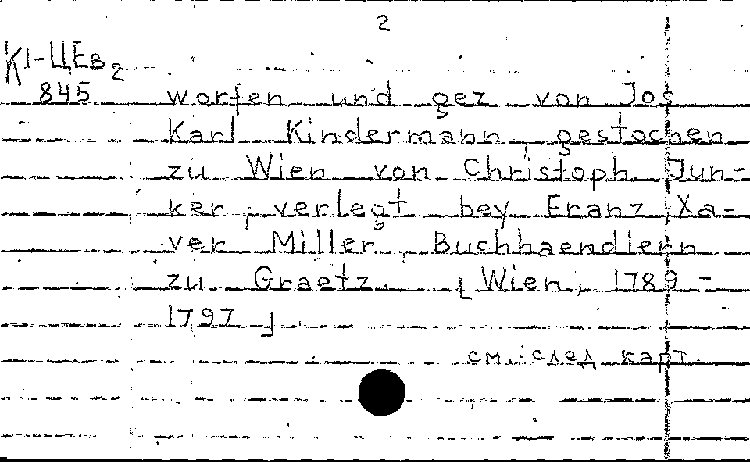 2
К1-ЦЕв2
845
worfen und gez von Jos
Karl Kindermann, gestochen
zu Wien von Christoph Jun-
ker, verlegt bey Franz Xa-
ver Miller, Buchhaendlern
zu Graetz. [Wien, 1789-
1797].
см. след карт.